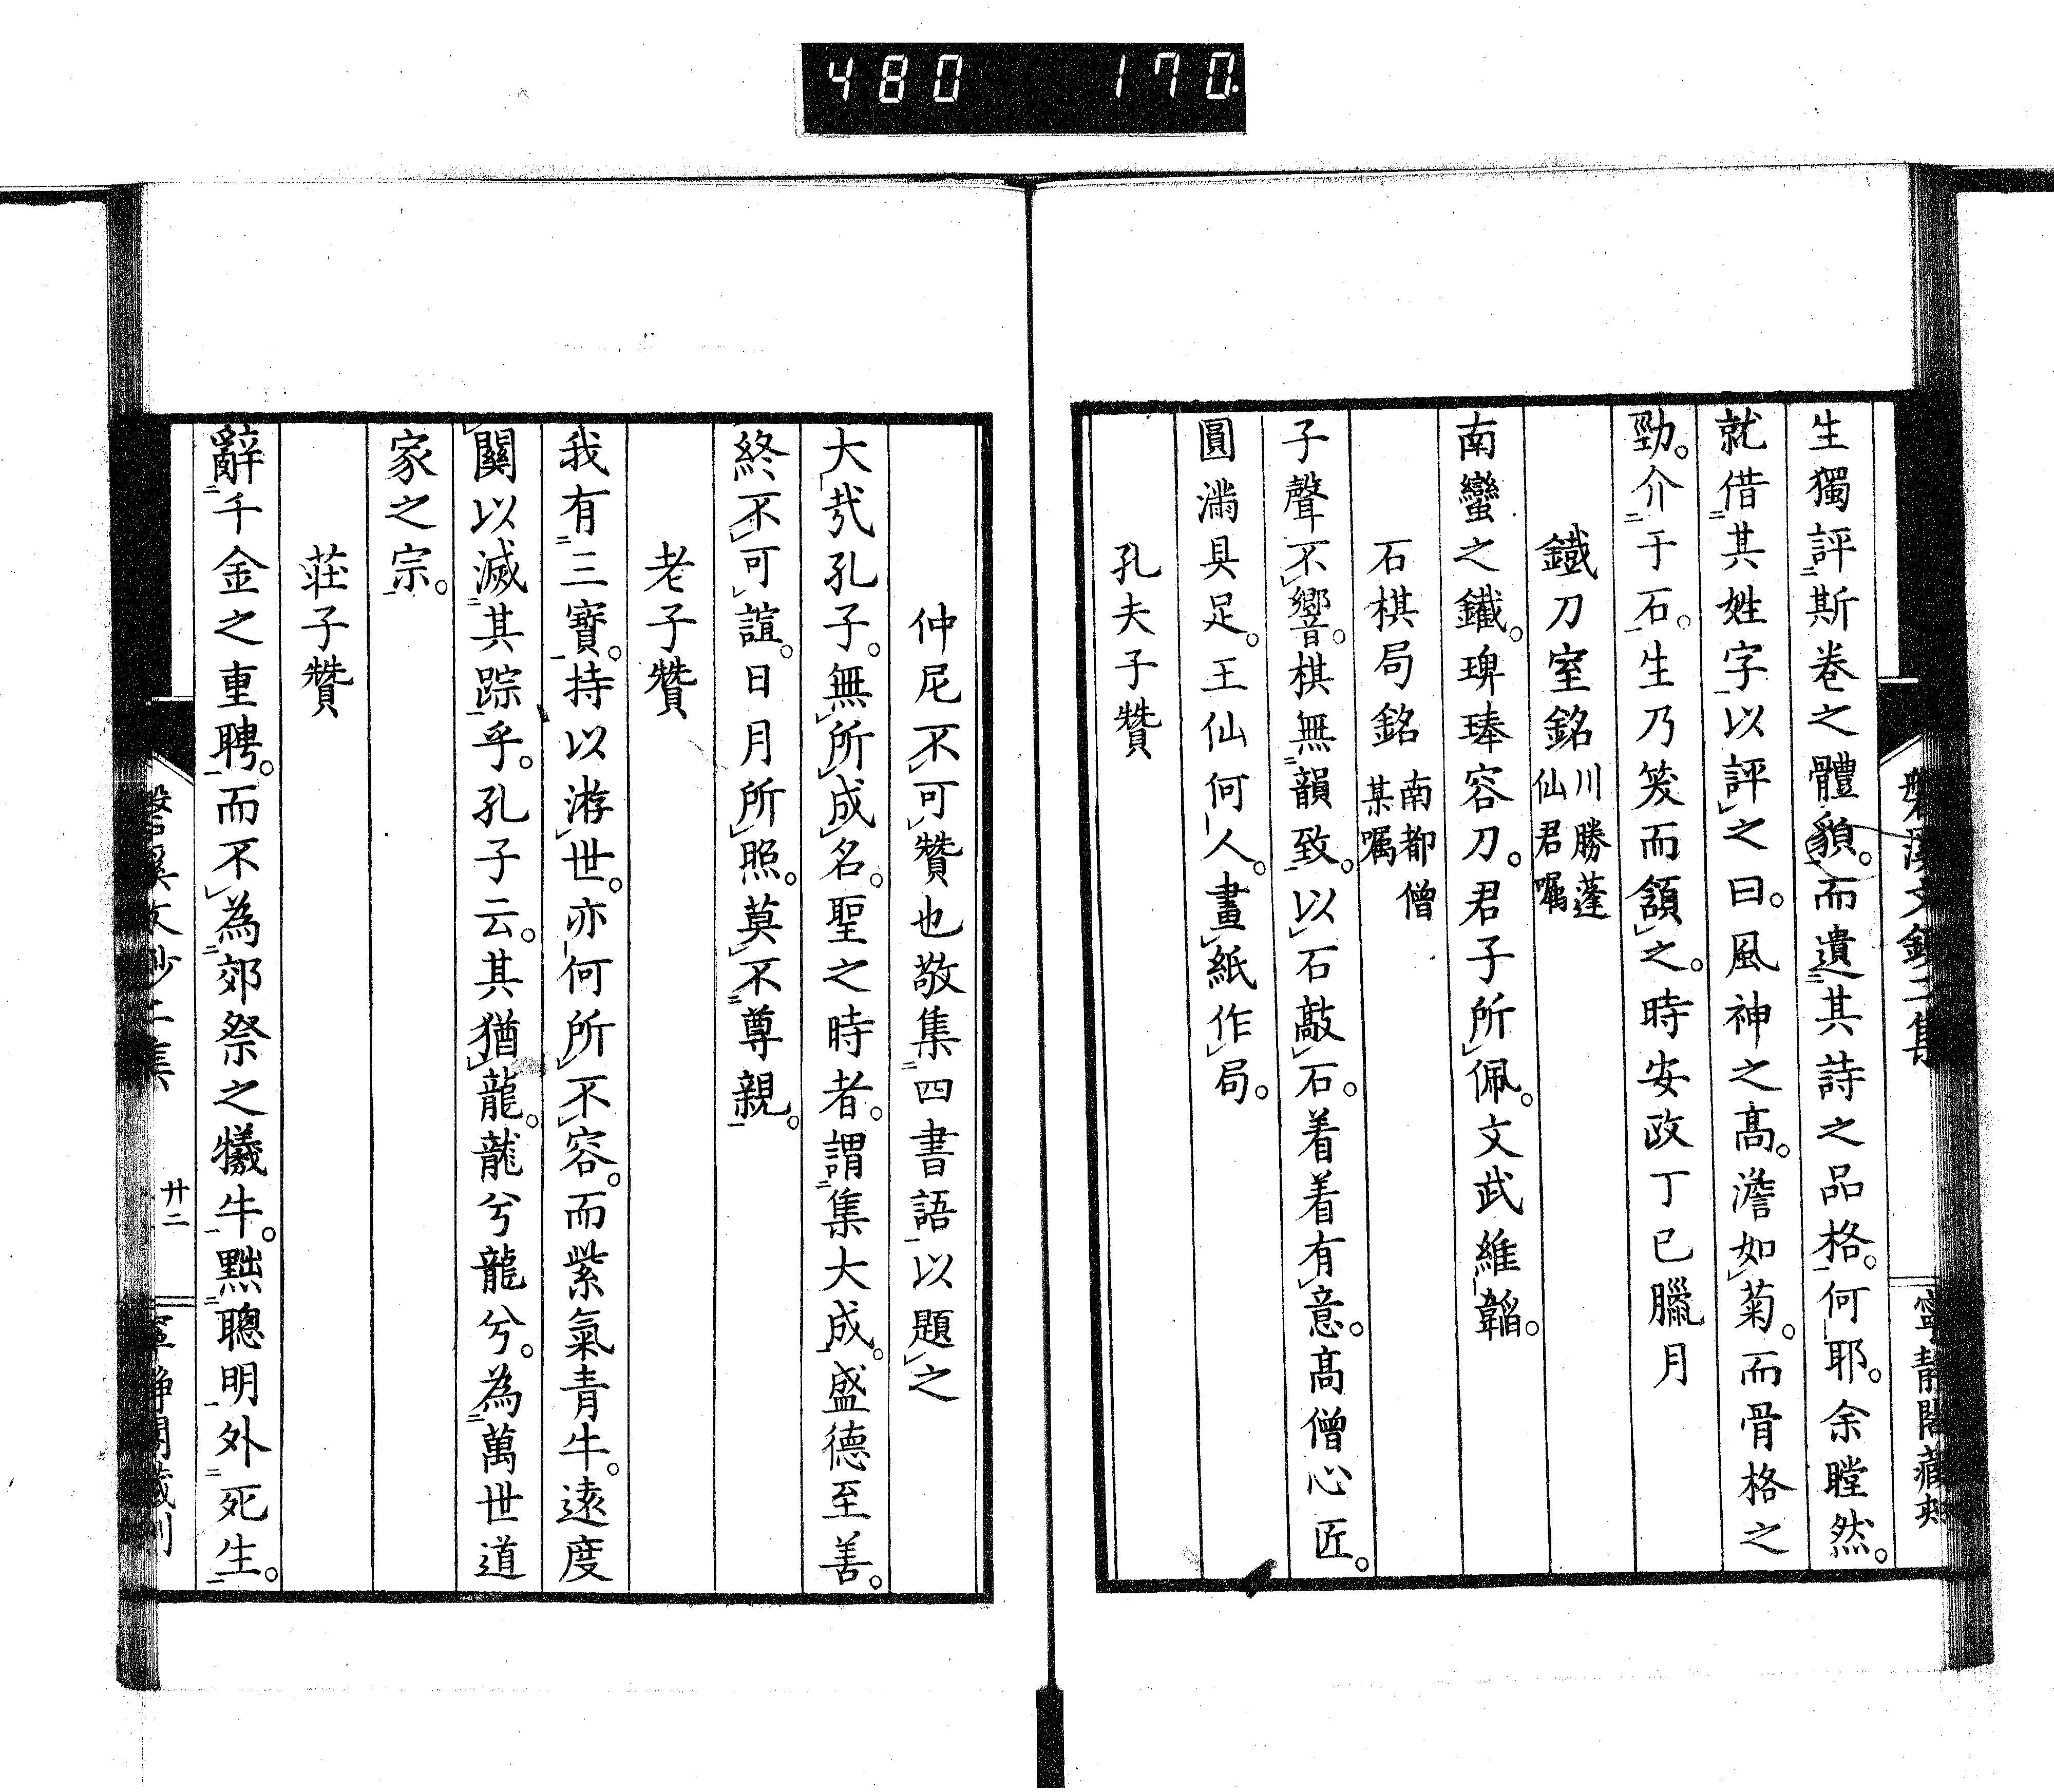 480 170
生獨評斯卷之體貌。而遺其詩之品格。何耶。余瞠然。
就借其姓字以評之曰。風神之高。澹如菊。而骨格之
勁。介于石。生乃笑而頷之。時安政丁巳臘月
鐵刀室銘 川勝蓬仙君囑
南蠻之鐵。琕琫容刀。君子所佩。文武維韜。
石棋局銘 南都僧某囑
子聲不響。棋無韻致。以石敲石。着着有意。高僧心匠。
圓滿具足。王仙何人。畫紙作局。
孔夫子贊
仲尼不可贊也敬集四書語以題之
大哉孔子。無所成名。聖之時者。謂集大成。盛德至善。
終不可諠。日月所照。莫不尊親。
老子贊
我有三寶。持以游世。亦何所不容。而紫氣青牛。遠度
關以滅其踪乎。孔子云。其猶龍。龍兮龍兮。為萬世道
家之宗。
莊子贊
辭千金之重聘。而不為郊祭之犧牛。黜聰明外死生。
廿二